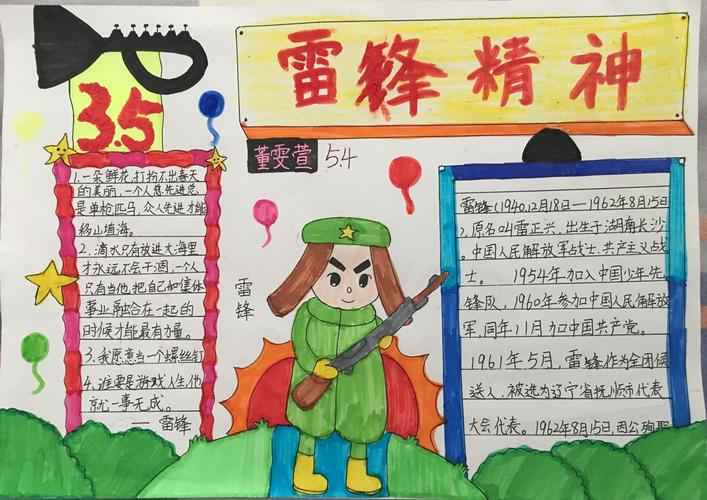 雷锋精神
3.5
董雯萱 5.4
1.一朵鲜花,打扮不出春天
的美丽,一个人息先进总
是单枪匹马,众人先进才能
移山填海。
2.滴水只有放进大海里
才永远不会干涸,一个人
只有当他把自己和集体
事业融合在一起的
时候才能最有力量。
3.我愿意当一个螺丝钉
4.谁要是游戏人生,他
就一事无成。
——雷锋
雷锋
雷锋(1940.12月18日—1962年8月15日
),原名叫雷正兴,出生于湖南长沙
,中国人民解放军战士,共产主义战
士。 1954年加入中国少年先
锋队,1960年参加中国人民解放
军,同年11月加中国共产党。
1961年5月,雷锋作为全团候
送人,被选为辽宁省抚顺市代表
大会代表。1962年8月15日,因公殉职